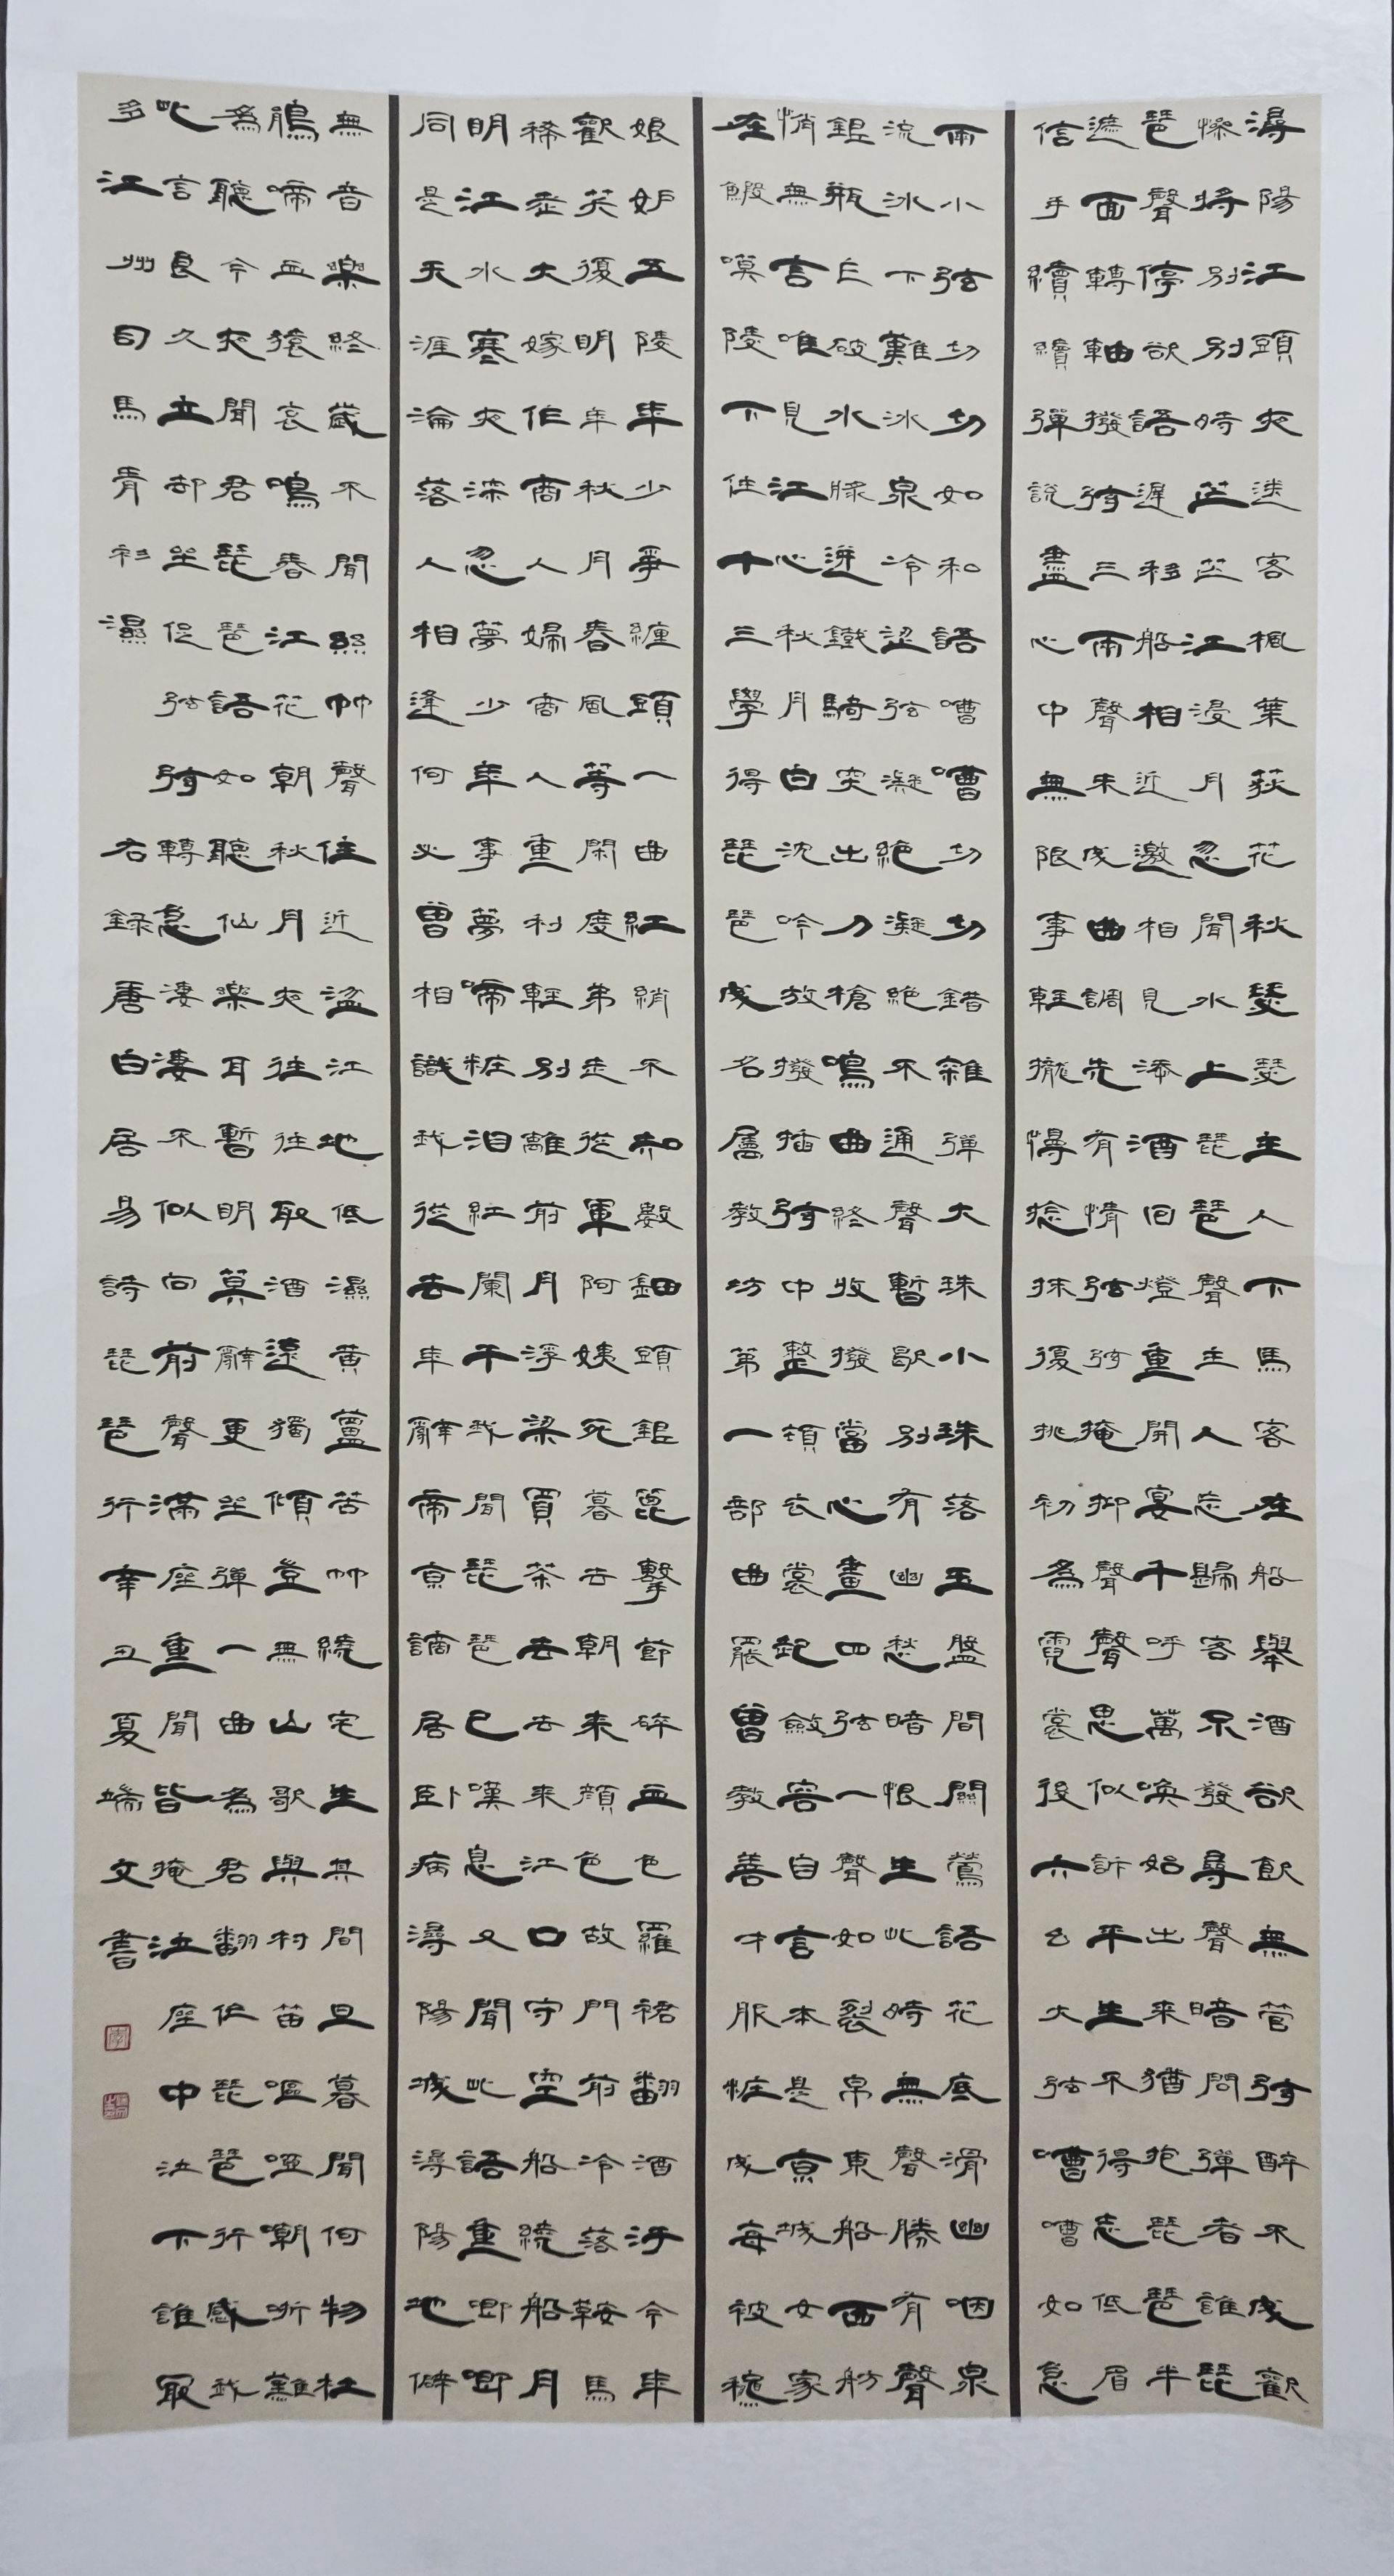 潯陽江頭夜送客楓葉荻花秋瑟瑟主人下馬客在船舉酒欲飲無管弦醉不成歡
慘將別別時茫茫江浸月忽聞水上琵琶聲主人忘歸客不發尋聲暗問彈者誰琵
琶聲停欲語遲移船相近邀相見添酒回燈重開宴千呼萬喚始出來猶抱琵琶半
遮面轉軸撥弦三兩聲未成曲調先有情弦弦掩抑聲聲思似訴平生不得志低眉
信手續續彈說盡心中無限事輕攏慢捻抹復挑初為霓裳後六幺大弦嘈嘈如急
雨小弦切切如和語嘈嘈切切錯雜彈大珠小珠落玉盤間關鶯語花底滑幽咽泉
流冰下難冰泉冷澀弦凝絕凝絕不通聲暫歇別有幽愁暗恨生此時無聲勝有聲
銀瓶乍破水漿迸鐵騎突出刀槍鳴曲終收撥當心畫四弦一聲如裂帛東船西舫
悄無言唯見江心秋月白沈吟放撥插弦中整頓衣裳起斂容自言本是京城女家
在鰕嗼陵下住十三學得琵琶成名屬教坊第一部曲罷曾教善才服粧成每被穐
娘妒五陵年少爭纏頭一曲紅綃不知數鈿頭銀篦擊節碎血色羅裙翻酒污今年
歡笑復明年秋月春風等閑度弟走從軍阿姨死暮去朝來顏色故門前冷落鞍馬
稀老大嫁作商人婦商人重利輕別離前月浮梁買茶去去來江口守空船繞船月
明江水寒夜深忽夢少年事夢啼粧淚紅闌干我聞琵琶已嘆息又聞此語重唧唧
同是天涯淪落人相逢何必曾相識我從去年辭帝京謫居臥病潯陽城潯陽地僻
無音樂終歲不聞絲竹聲住近湓江地低濕黃蘆苦竹繞宅生其間旦暮聞何物杜
鵑啼血猿哀鳴春江花朝秋月夜往往取酒還獨傾豈無山歌與村笛嘔啞嘲哳難
為聽今夜聞君琵琶語如聽仙樂耳暫明莫辭更坐彈一曲為君翻作琵琶行感我
此言良久立却坐促弦弦轉急淒淒不似向前聲滿座重聞皆掩泣座中泣下誰最
多江州司馬青衫濕
右錄唐白居易詩琵琶行辛丑夏端文書